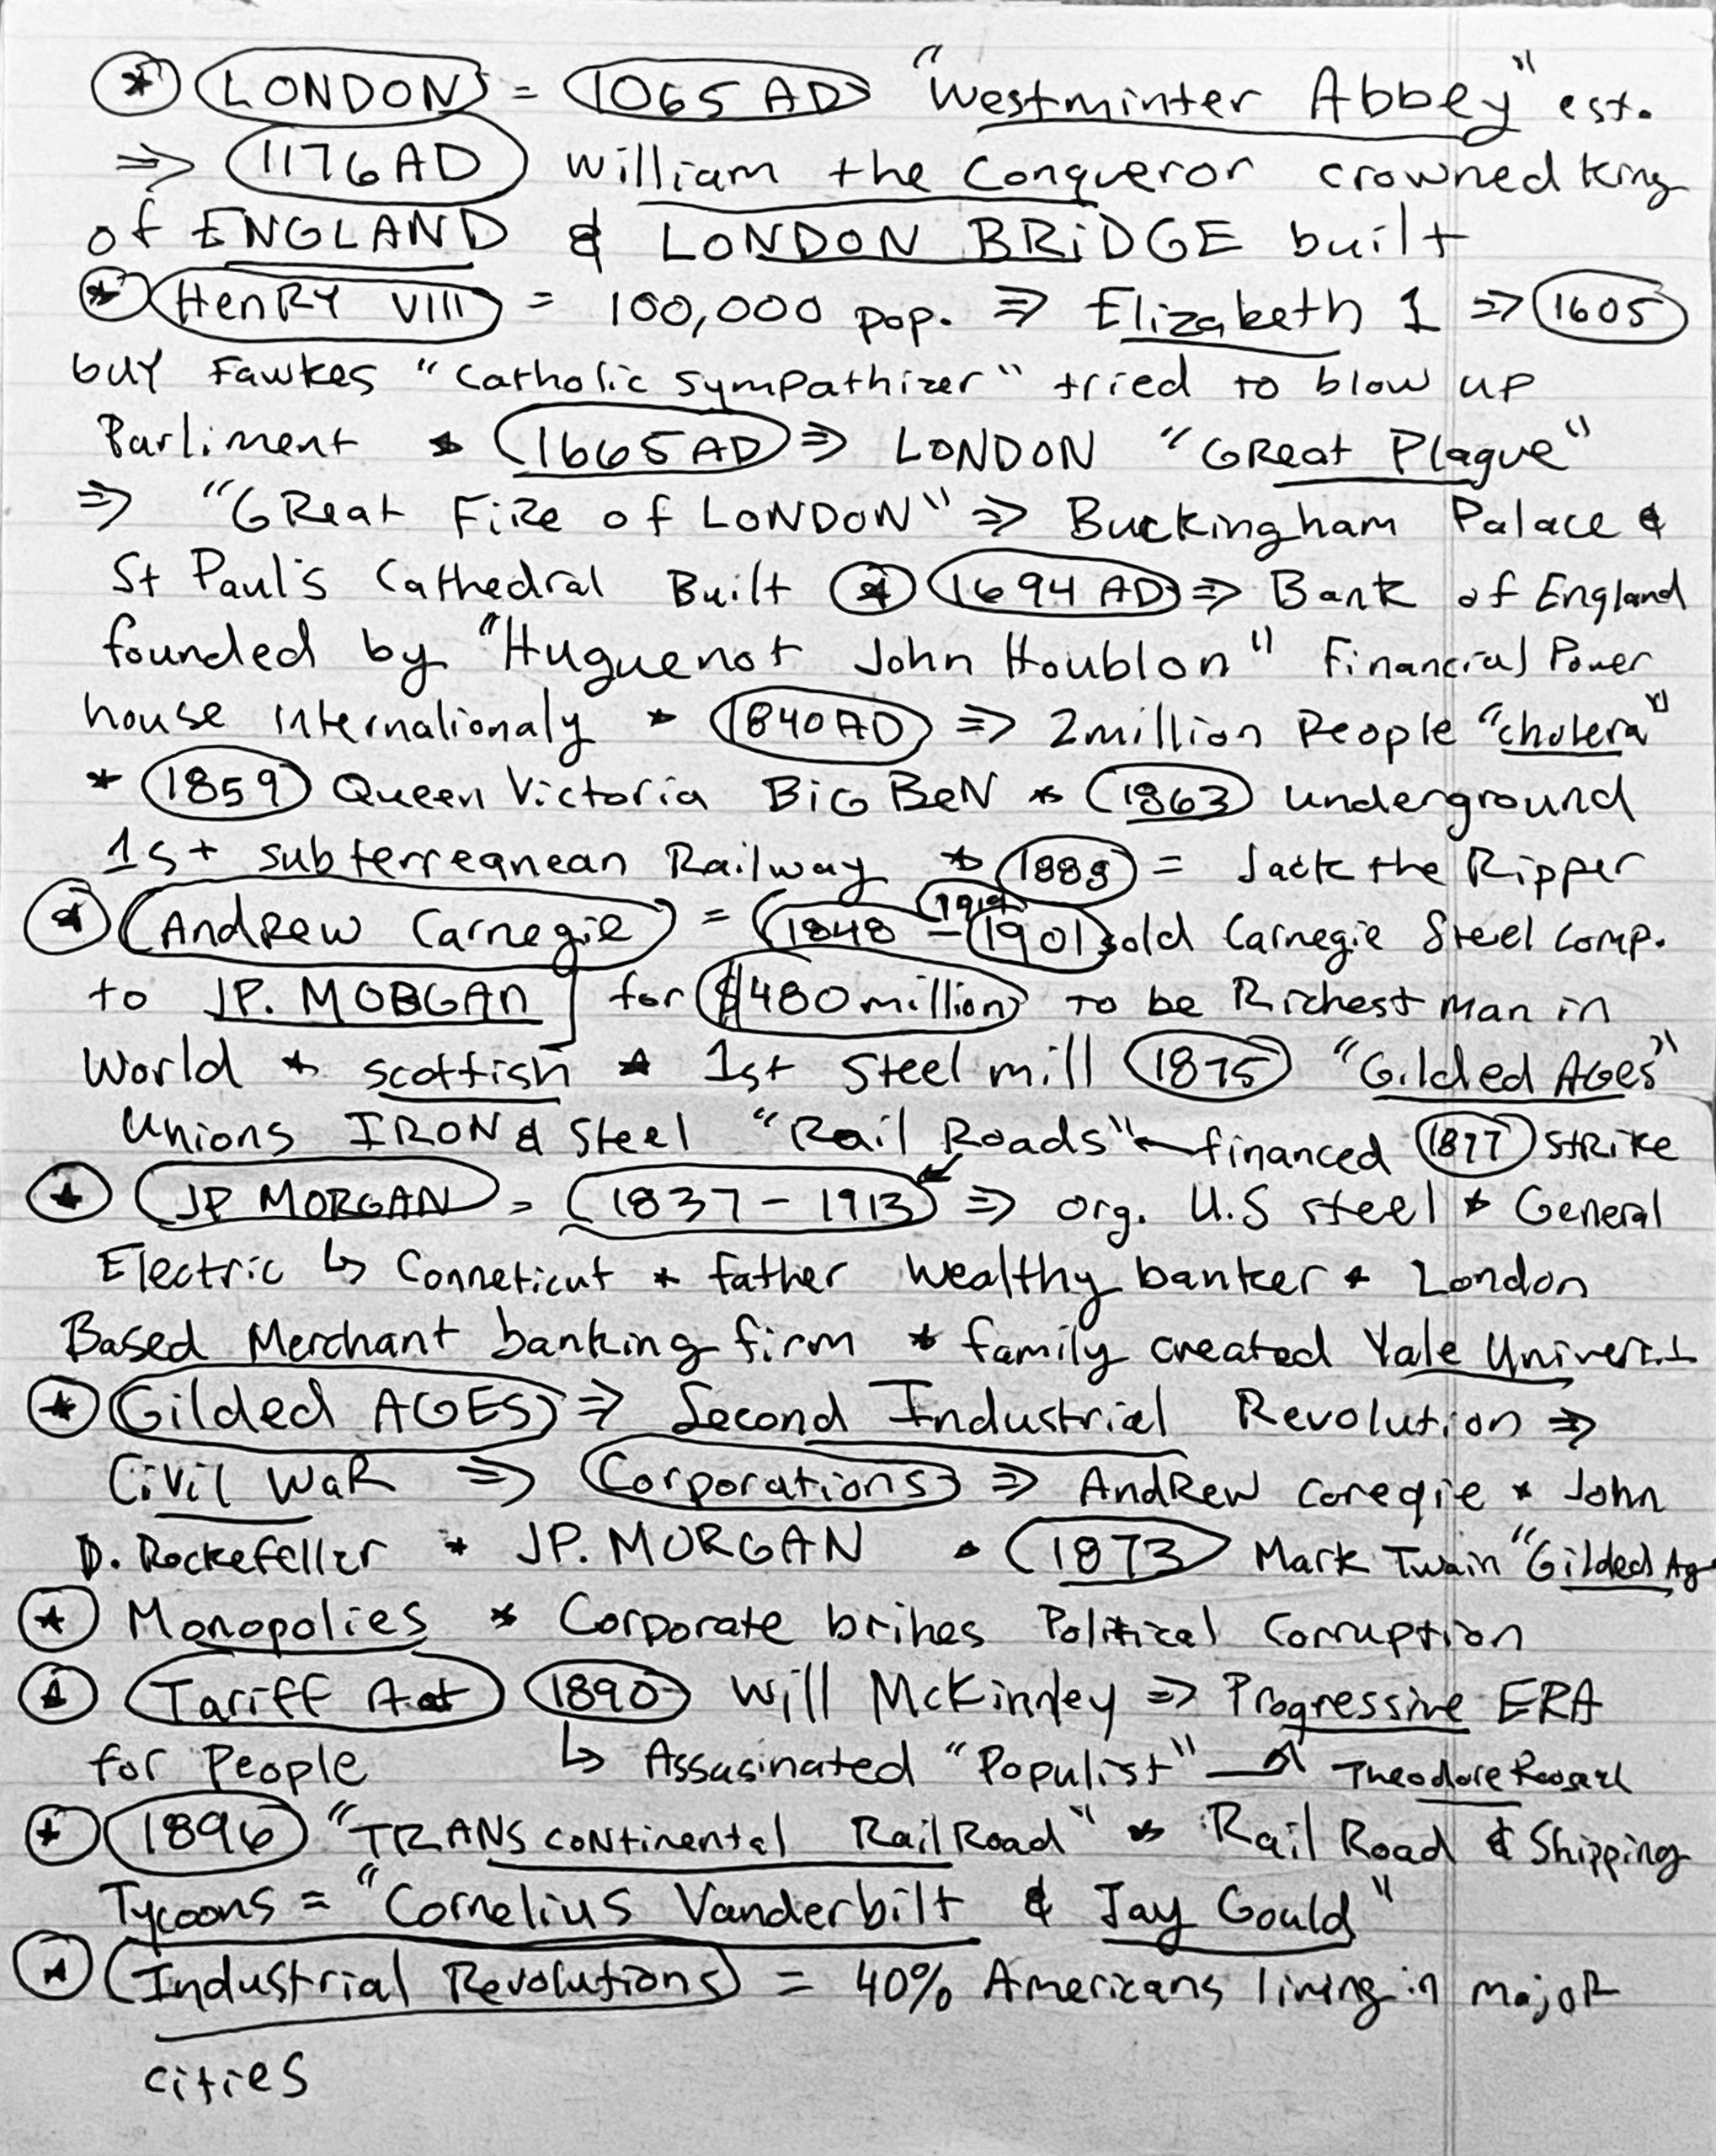 ⊛ LONDON = 1065 AD "Westminter Abbey" est.
⇒ 1176 AD William the Conqueror crowned king
of ENGLAND & LONDON BRiDGE built
⊛ HenRY VIII = 100,000 pop. ⇒ Elizabeth 1 ⇒ 1605
buy Fawkes "Catholic sympathizer" tried to blow up
Parliment * 1665 AD ⇒ LONDON "GReat Plague"
⇒ "GReat FiRe of LONDON" ⇒ Buckingham Palace &
St Paul's Cathedral Built ⊛ 1694 AD ⇒ Bank of England
founded by "Huguenot John Houblon" Financial Power
house internationaly * 1840 AD ⇒ 2million People "cholera"
* 1859 Queen Victoria BiG BeN * 1863 underground
1st subterreanean Railway * 1888 = Jack the Ripper
⊛ AndRew Carnegie = 1848 - 1919 1901 sold Carnegie Steel comp.
to JP. MORGAn for $480 million to be Richest man in
World * scottish * 1st Steel mill 1875 "Gilded AGes"
Unions IRON & Steel "Rail Roads" ← financed 1877 stRiKe
⊛ JP MORGAN = 1837 - 1913 ⇒ org. U.S steel * General
Electric ↳ Conneticut * father wealthy banker * London
Based Merchant banking firm * family created Yale
⊛ Gilded AGES ⇒ Second Industrial Revolution ⇒
Civil WaR ⇒ Corporations ⇒ AndRew Caregie * John
D. Rockefeller * JP. MORGAN * 1873 Mark Twain "Gilded Ag
⊛ Monopolies * Corporate bribes Political Corruption
⊛ Tariff Act 1890 Will McKinley ⇒ Progressive ERA
for People ↳ Assasinated "Populist" → Theodore
⊛ 1896 "TRANScontinental RailRoad" * Rail Road & Shipping
Tycoons = "Cornelius Vanderbilt & Jay Gould"
⊛ Industrial Revolutions = 40% Americans living in majoR
cities